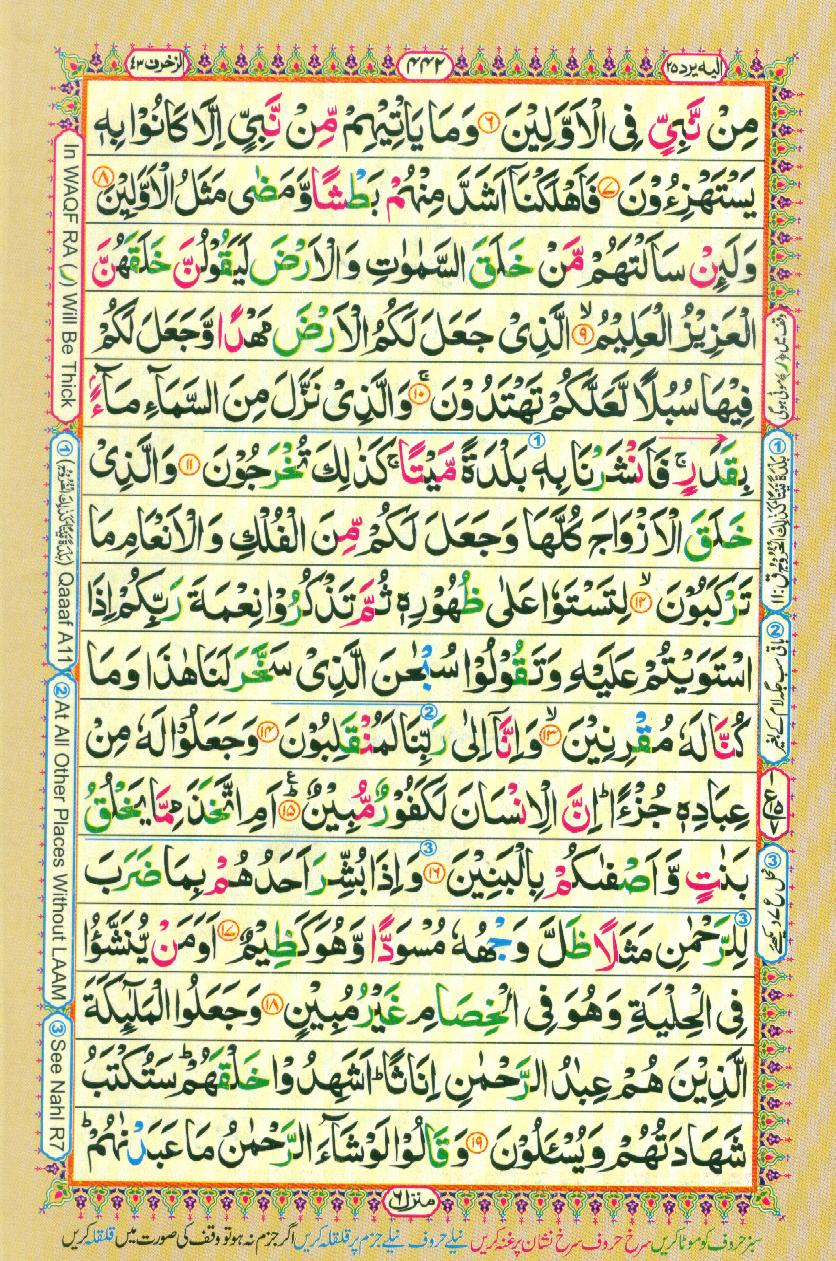 الیہ یرد ۲۵
۴۴۲
الزخرف ۴۳
مِنْ نَّبِیٍّ فِی الْاَوَّلِیْنَ ۶ وَمَا یَاْتِیْهِمْ مِّنْ نَّبِیٍّ اِلَّا كَانُوْا بِهٖ
یَسْتَهْزِءُوْنَ ۷ فَاَهْلَكْنَاۤ اَشَدَّ مِنْهُمْ بَطْشًا وَّمَضٰی مَثَلُ الْاَوَّلِیْنَ ۸
وَلَىِٕنْ سَاَلْتَهُمْ مَّنْ خَلَقَ السَّمٰوٰتِ وَالْاَرْضَ لَیَقُوْلُنَّ خَلَقَهُنَّ
الْعَزِیْزُ الْعَلِیْمُ ۙ۹ الَّذِیْ جَعَلَ لَكُمُ الْاَرْضَ مَهْدًا وَّجَعَلَ لَكُمْ
فِیْهَا سُبُلًا لَّعَلَّكُمْ تَهْتَدُوْنَ ۚ۱۰ وَالَّذِیْ نَزَّلَ مِنَ السَّمَآءِ مَآءًۢ
بِقَدَرٍ ۚ فَاَنْشَرْنَا بِهٖ بَلْدَةً مَّیْتًا ۚ كَذٰلِكَ تُخْرَجُوْنَ ۱۱ وَالَّذِیْ
خَلَقَ الْاَزْوَاجَ كُلَّهَا وَجَعَلَ لَكُمْ مِّنَ الْفُلْكِ وَالْاَنْعَامِ مَا
تَرْكَبُوْنَ ۙ۱۲ لِتَسْتَوٗا عَلٰی ظُهُوْرِهٖ ثُمَّ تَذْكُرُوْا نِعْمَةَ رَبِّكُمْ اِذَا
اسْتَوَیْتُمْ عَلَیْهِ وَتَقُوْلُوْا سُبْحٰنَ الَّذِیْ سَخَّرَ لَنَا هٰذَا وَمَا
كُنَّا لَهٗ مُقْرِنِیْنَ ۙ۱۳ وَاِنَّاۤ اِلٰی رَبِّنَا لَمُنْقَلِبُوْنَ ۱۴ وَجَعَلُوْا لَهٗ مِنْ
عِبَادِهٖ جُزْءًا ؕ اِنَّ الْاِنْسَانَ لَكَفُوْرٌ مُّبِیْنٌ ؕ۱۵ اَمِ اتَّخَذَ مِمَّا یَخْلُقُ
بَنٰتٍ وَّاَصْفٰىكُمْ بِالْبَنِیْنَ ۱۶ وَاِذَا بُشِّرَ اَحَدُهُمْ بِمَا ضَرَبَ
لِلرَّحْمٰنِ مَثَلًا ظَلَّ وَجْهُهٗ مُسْوَدًّا وَّهُوَ كَظِیْمٌ ۱۷ اَوَمَنْ یُّنَشَّؤُا
فِی الْحِلْیَةِ وَهُوَ فِی الْخِصَامِ غَیْرُ مُبِیْنٍ ۱۸ وَجَعَلُوا الْمَلٰٓىِٕكَةَ
الَّذِیْنَ هُمْ عِبٰدُ الرَّحْمٰنِ اِنَاثًا ؕ اَشَهِدُوْا خَلْقَهُمْ ؕ سَتُكْتَبُ
شَهَادَتُهُمْ وَیُسْـَٔلُوْنَ ۱۹ وَقَالُوْا لَوْ شَآءَ الرَّحْمٰنُ مَا عَبَدْنٰهُمْ ؕ
منزل ۶
سبز حروف کو موٹا کریں سرخ حروف سرخ نشان پر غنہ کریں نیلے حروف نیلے جزم پر قلقلہ کریں اگر جزم نہ ہو تو وقف کی صورت میں قلقلہ کریں
In WAQF RA (ر) Will Be Thick
① (بَلْدَةً مَّيْتًا كَذٰلِكَ الْخُرُوْجُ) Qaaaf A11
② At All Other Places Without LAAM
③ See Nahl R7